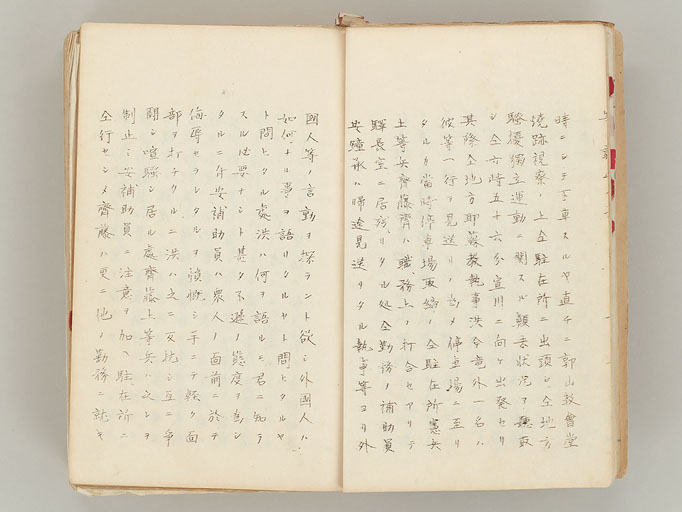 時ニシテ下車スルヤ直チニ郭山教會堂
燒跡視察ノ上仝駐在所ニ出頭シ仝地方
騷擾獨立運動ニ関スル顛末狀況ヲ聽取
シ仝六時五十六分宣川ニ向ケ出発セリ
其際仝地方耶蘇教執事洪 外一名ハ
彼等一行ヲ見送リノ為メ停車場ニ至リ
タルガ當時停車場取締ノ仝駐在所憲兵
上等兵齊藤齊ハ職務上ノ打合セアリテ
驛長室ニ居残リタル処仝勤務ノ補助員
安 承ハ帰途見送リタル執事等ヨリ外
國人等ノ言動ヲ探ラント欲シ外國人ハ
如何ナル事ヲ語リタルヤト問ヒタルヤ
ト問ヒタル處洪ハ何ヲ語ルモ君ニ知ラ
スル必要ナシト甚タ不遜ノ態度ヲ為シ
タルニ付安補助員ハ衆人ノ面前ニ於テ
侮辱セラレタルヲ憤慨シ手ニテ軽ク面
部ヲ打チタルニ洪ハ之ニ反抗シ互ニ争
闘シ喧騷シ居ル處齊藤上等兵ハ之レヲ
制止シ安補助員ニ注意ヲ加ヘ駐在所ニ
仝行セシメ齊藤ハ更ニ他ノ勤務ニ就キ